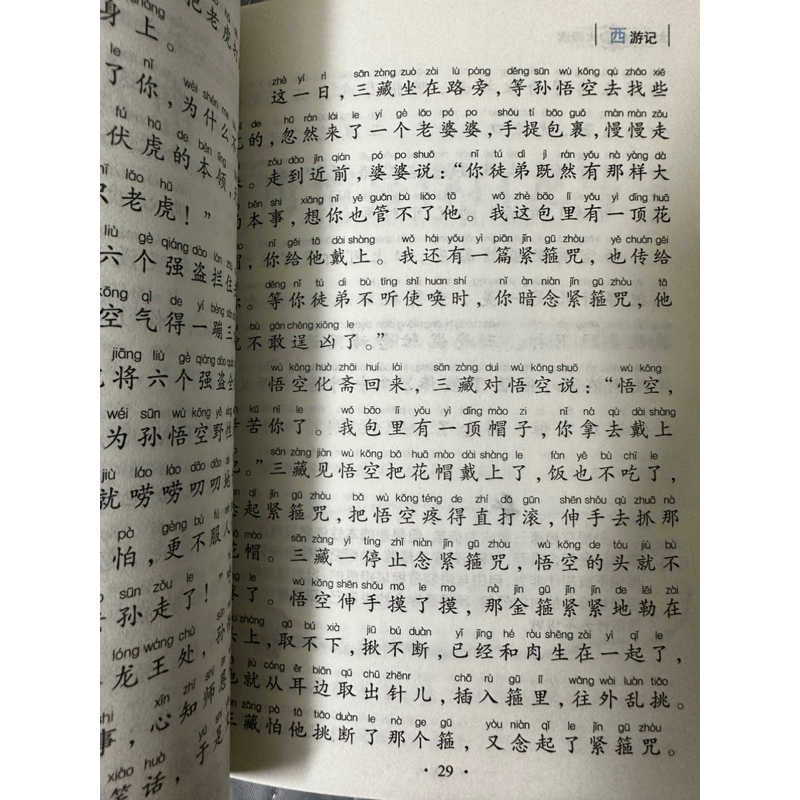 把老虎
身上。
le nǐ wèi shén me
了你，为什么不
fú hǔ de běn lǐng
伏虎的本领，
lǎo hǔ
老虎！”
liù gè qiáng dào lán zhù
六个强盗拦住
kōng qì de yí bèng sān
空气得一蹦三
jiāng liù gè qiáng dào
将六个强盗
wéi sūn wù kōng yě
为孙悟空野性
jiù láo láo dāo dāo
就唠唠叨叨地
pà gèng bù fú
怕，更不服人
sūn zǒu le
孙走了！”
lóng wáng chù
龙王处，孙
xīn zhī shī
事，心知师
xiào huà yú shì
笑话，于是
西游记
zhè yí rì sān zàng zuò zài lù páng děng sūn wù kōng qù zhǎo xiē
这一日，三藏坐在路旁，等孙悟空去找些
de hū rán lái le yí gè lǎo pó po shǒu tí bāo guǒ màn màn zǒu
的，忽然来了一个老婆婆，手提包裹，慢慢走
zǒu dào jìn qián pó po shuō nǐ tú dì jì rán yǒu nà yàng dà
。走到近前，婆婆说：“你徒弟既然有那样大
běn shi xiǎng nǐ yě guǎn bù liǎo tā wǒ zhè bāo lǐ yǒu yì dǐng huā
的本事，想你也管不了他。我这包里有一顶花
nǐ gěi tā dài shàng wǒ hái yǒu yì piān jǐn gū zhòu yě chuán gěi
帽，你给他戴上。我还有一篇紧箍咒，也传给
děng nǐ tú dì bù tīng shǐ huan shí nǐ àn niàn jǐn gū zhòu tā
你。等你徒弟不听使唤时，你暗念紧箍咒，他
bù gǎn chěng xiōng le
不敢逞凶了。”
wù kōng huà zhāi huí lái sān zàng duì wù kōng shuō wù kōng
悟空化斋回来，三藏对悟空说：“悟空，
kǔ nǐ le wǒ bāo lǐ yǒu yì dǐng mào zi nǐ ná qù dài shàng
苦你了。我包里有一顶帽子，你拿去戴上
sān zàng jiàn wù kōng bǎ huā mào dài shàng le fàn yě bù chī le
吧。”三藏见悟空把花帽戴上了，饭也不吃了，
qǐ jǐn gū zhòu bǎ wù kōng téng de zhí dǎ gǔn shēn shǒu qù zhuā nà
念起紧箍咒，把悟空疼得直打滚，伸手去抓那
mào sān zàng yì tíng zhǐ niàn jǐn gū zhòu wù kōng de tóu jiù bù
花帽。三藏一停止念紧箍咒，悟空的头就不
le wù kōng shēn shǒu mō le mo nà jīn gū jǐn jǐn de lēi zài
了。悟空伸手摸了摸，那金箍紧紧地勒在
shàng qǔ bú xià jiū bú duàn yǐ jīng hé ròu shēng zài yì qǐ le
头上，取不下，揪不断，已经和肉生在一起了，
jiù cóng ěr biān qǔ chū zhēnr chā rù gū lǐ wǎng wài luàn tiǎo
他就从耳边取出针儿，插入箍里，往外乱挑。
zàng pà tā tiǎo duàn le nà ge gū yòu niàn qǐ le jǐn gū zhòu
三藏怕他挑断了那个箍，又念起了紧箍咒。
· 29 ·